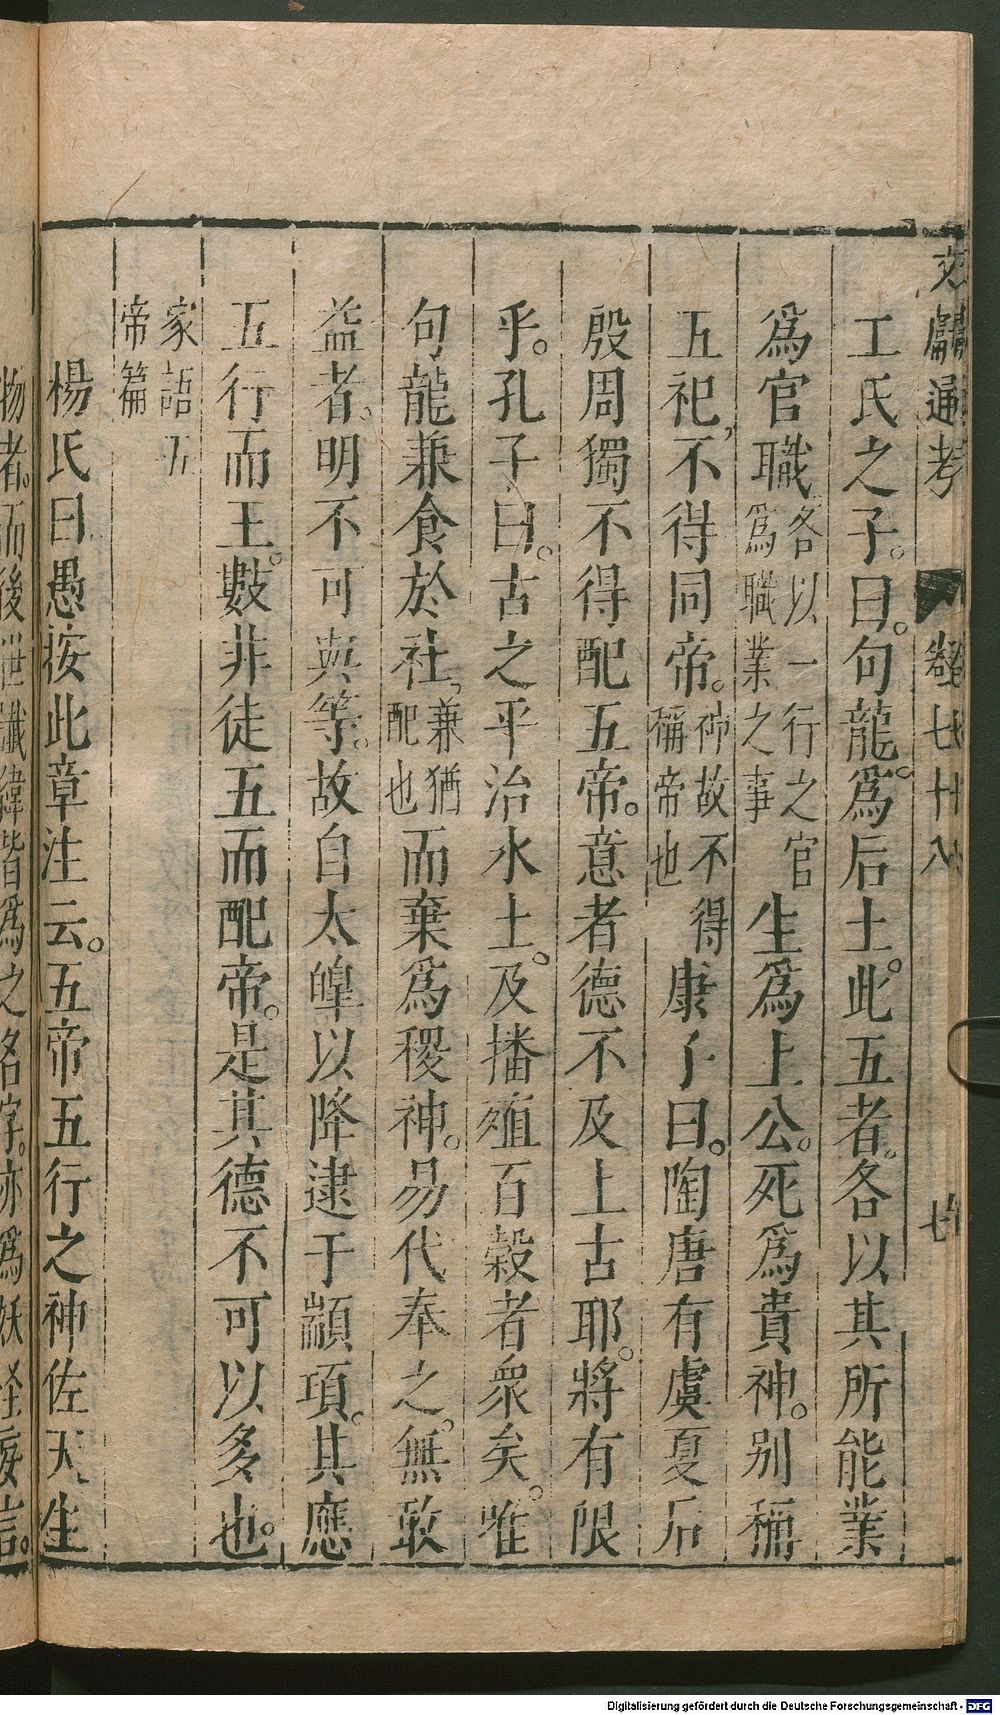 文獻通考 卷七十八 七
工氏之子。曰。句龍。爲后土。此五者。各以其所能業
爲官職各以一行之官爲職業之事生爲上公。死爲貴神。別稱
五祀,不得同帝。神故不得稱帝也康子曰。陶唐有虞夏后
殷周獨不得配五帝。意者德不及上古耶。將有限
乎。孔子曰。古之平治水土。及播殖百穀者衆矣。唯
句龍兼食於社,兼猶配也而棄爲稷神。易代奉之。無敢
益者。明不可與等。故自太皥以降逮于顓頊。其應
五行而王。數非徒五而配帝。是其德不可以多也。
家語五帝篇
楊氏曰愚按此章注云。五帝五行之神佐天生
物者。而後世讖緯皆爲之名字。亦爲妖怪妄言。
Digitalisierung gefördert durch die Deutsche Forschungsgemeinschaft - DFG